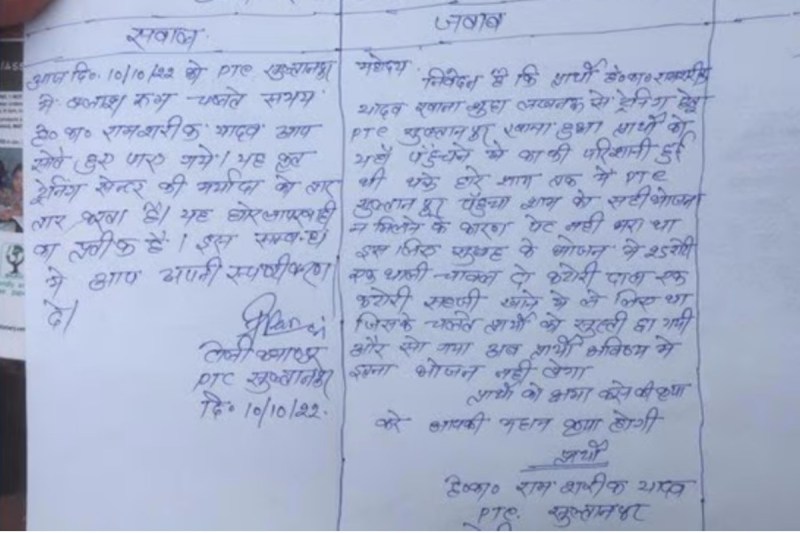 सवाल
आज दि० 10/10/22 को PTC सुल्तानपुर
में क्लास रूम चलते समय
हे०का० रामशरीफ यादव आप
सोते हुए पाए गये। यह कृत
ट्रेनिंग सेन्टर की मर्यादा को तार
तार करता है। यह घोर लापरवाही
का प्रतीक है। इस सम्बन्ध
में आप अपनी स्पष्टीकरण
दे।
टोली कमाण्डर
PTC सुल्तानपुर
दि० 10/10/22.
जबाब
महोदय
निवेदन है कि प्रार्थी हे०का० रामशरीफ
यादव रवाना शुदा लखनऊ से ट्रेनिंग हेतु
PTC सुल्तानपुर रवाना हुआ प्रार्थी को
यहाँ पहुँचने में काफी परेशानी हुई
थी थके हारे शाम तक मैं PTC
सुल्तानपुर पहुंचा शाम को सही भोजन
न मिलने के कारण पेट नही भरा था
इस लिए सुबह के भोजन में 25 रोटी
एक थाली चावल दो कटोरी दाल एक
कटोरी सब्जी खाने में ले लिया था
जिसके चलते प्रार्थी को सुस्ती आ गयी
और सो गया अब प्रार्थी भविष्य में
इतना भोजन नही लेगा
प्रार्थी को क्षमा करने की कृपा
करे आपकी महान कृपा होगी
प्रार्थी
हे०का० राम शरीफ यादव
PTC सुल्तानपुर